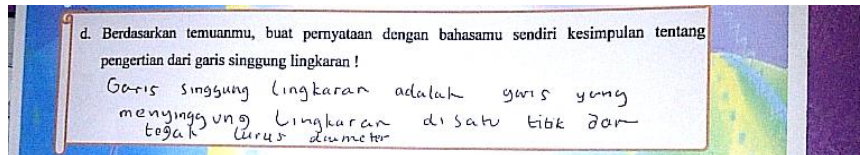 d. Berdasarkan temuanmu, buat pernyataan dengan bahasamu sendiri kesimpulan tentang
pengertian dari garis singgung lingkaran !
Garis singgung lingkaran adalah garis yang
menyinggung lingkaran disatu titik dan
tegak lurus diameter